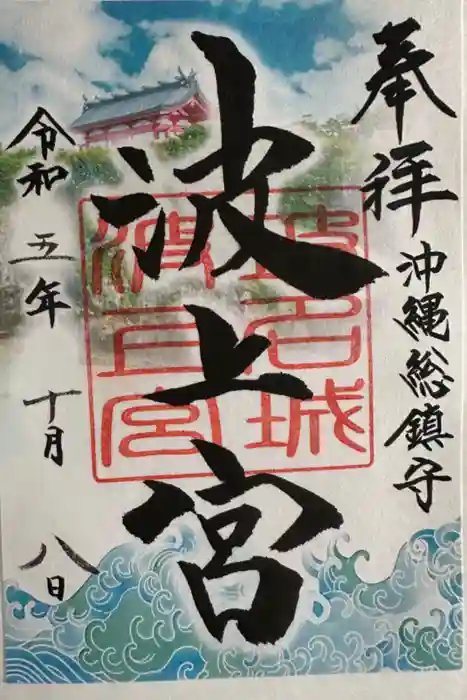 奉拝
沖縄総鎮守
波上宮
波上宮
令和五年十月八日